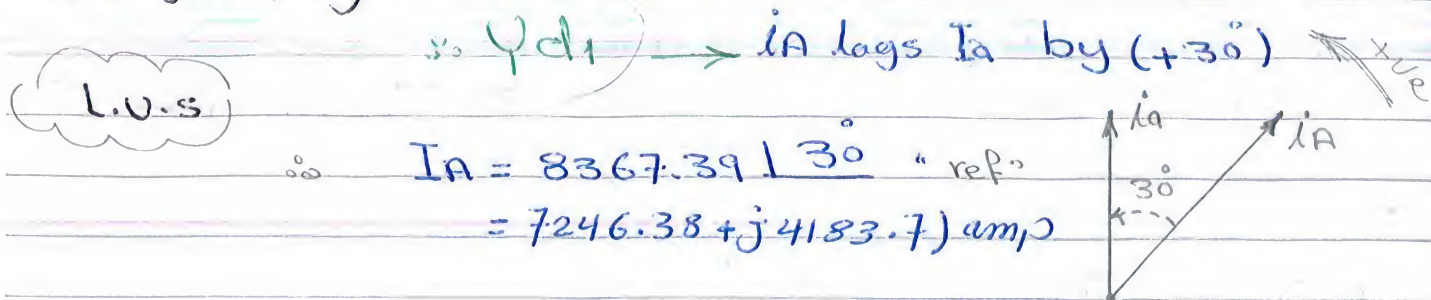 ∴ Yd1 → iA lags Ia by (+30°)
+ve
L.V.S
∴ IA = 8367.39 ∠30° "ref"
= 7246.38 + j 4183.7) amp
ia
iA
30°